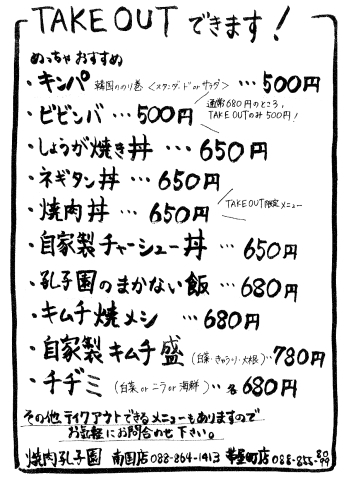 TAKE OUT できます!
めっちゃ おすすめ
・キンパ 韓国ののり巻 〈スタンダード or サラダ〉 … 500円
・ビビンバ … 500円 通常680円のところ、
TAKE OUTのみ 500円!
・しょうが焼き丼 … 650円
・ネギタン丼 … 650円
・焼肉丼 … 650円 TAKE OUT限定メニュー
・自家製チャーシュー丼 … 650円
・孔子園のまかない飯 … 680円
・キムチ焼メシ … 680円
・自家製キムチ盛 (白菜・きゅうり・大根) … 780円
・チヂミ (白菜 or ニラ or 海鮮) … 各680円
その他、テイクアウトできるメニューもありますので
お気軽にお問合わせ下さい。
焼肉孔子園 南国店 088-864-1413 帯屋町店 088-855-8099